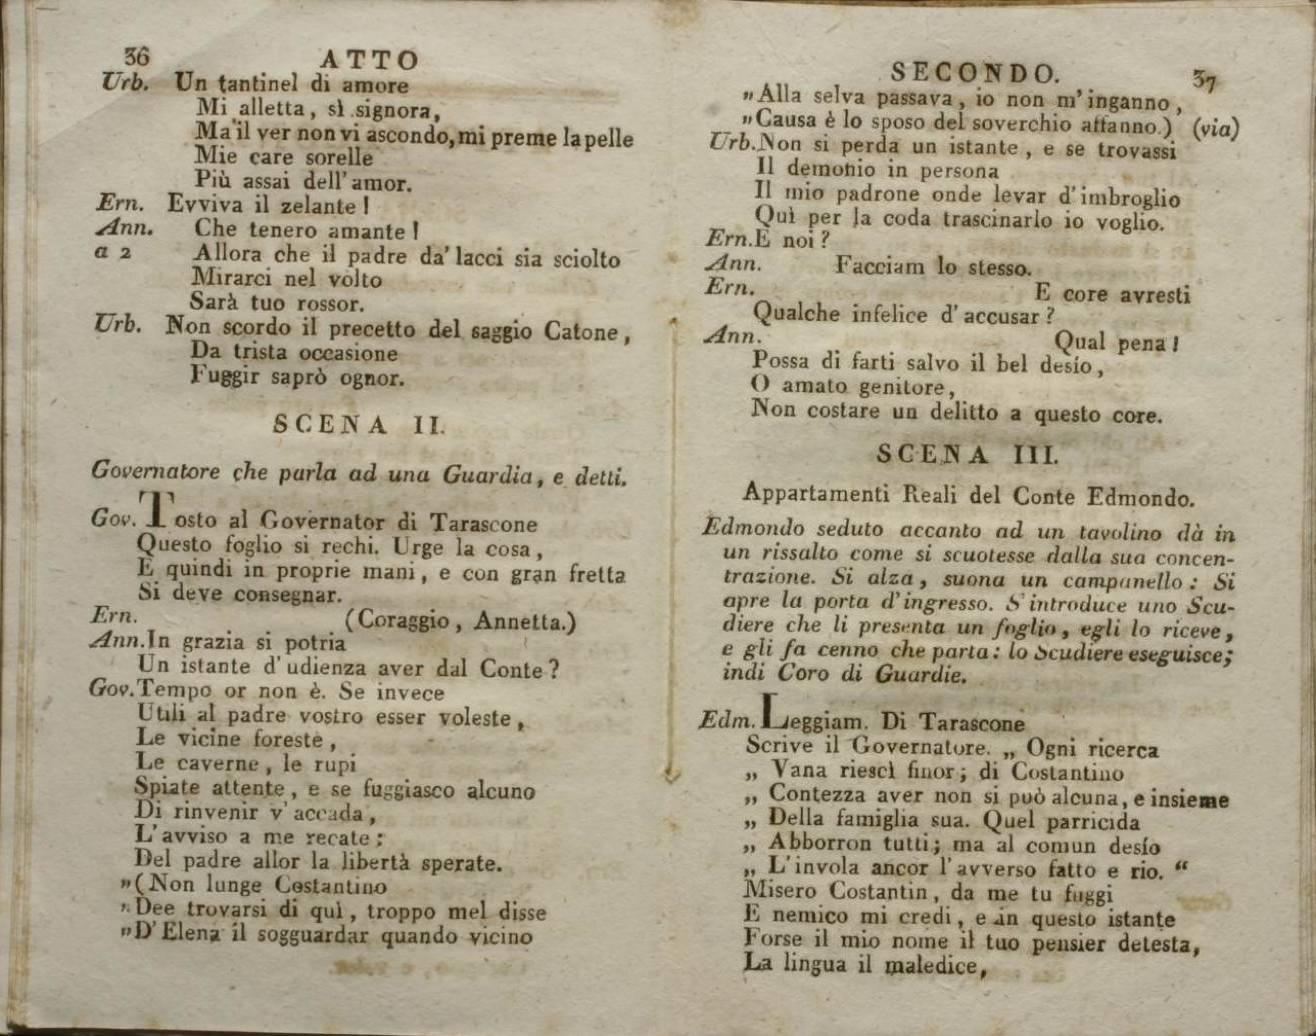 36 ATTO
Urb. Un tantinel di amore
Mi alletta, sì signora,
Ma il ver non vi ascondo, mi preme la pelle
Mie care sorelle
Più assai dell' amor.
Ern. Evviva il zelante!
Ann. Che tenero amante!
a 2 Allora che il padre da' lacci sia sciolto
Mirarci nel volto
Sarà tuo rossor.
Urb. Non scordo il precetto del saggio Catone,
Da trista occasione
Fuggir saprò ognor.
SCENA II.
Governatore che parla ad una Guardia, e detti.
Gov. Tosto al Governator di Tarascone
Questo foglio si rechi. Urge la cosa,
E quindi in proprie mani, e con gran fretta
Si deve consegnar.
Ern. (Coraggio, Annetta.)
Ann. In grazia si potria
Un istante d' udienza aver dal Conte?
Gov. Tempo or non è. Se invece
Utili al padre vostro esser voleste,
Le vicine foreste,
Le caverne, le rupi
Spiate attente, e se fuggiasco alcuno
Di rinvenir v' accada,
L' avviso a me recate;
Del padre allor la libertà sperate.
"(Non lunge Costantino
"Dee trovarsi di quì, troppo mel disse
"D' Elena il sogguardar quando vicino
SECONDO. 37
"Alla selva passava, io non m' inganno,
"Causa è lo sposo del soverchio affanno.) (via)
Urb. Non si perda un istante, e se trovassi
Il demonio in persona
Il mio padrone onde levar d' imbroglio
Quì per la coda trascinarlo io voglio.
Ern. E noi?
Ann. Facciam lo stesso.
Ern. E core avresti
Qualche infelice d' accusar?
Ann. Qual pena!
Possa di farti salvo il bel desío,
O amato genitore,
Non costare un delitto a questo core.
SCENA III.
Appartamenti Reali del Conte Edmondo.
Edmondo seduto accanto ad un tavolino dà in
un rissalto come si scuotesse dalla sua concen-
trazione. Si alza, suona un campanello: Si
apre la porta d' ingresso. S' introduce uno Scu-
diere che li presenta un foglio, egli lo riceve,
e gli fa cenno che parta: lo Scudiere eseguisce;
indi Coro di Guardie.
Edm. Leggiam. Di Tarascone
Scrive il Governatore. „ Ogni ricerca
„ Vana riescì finor; di Costantino
„ Contezza aver non si può alcuna, e insieme
„ Della famiglia sua. Quel parricida
„ Abborron tutti; ma al comun desío
„ L' invola ancor l' avverso fatto e rio. “
Misero Costantin, da me tu fuggi
E nemico mi credi, e in questo istante
Forse il mio nome il tuo pensier detesta,
La lingua il maledice,